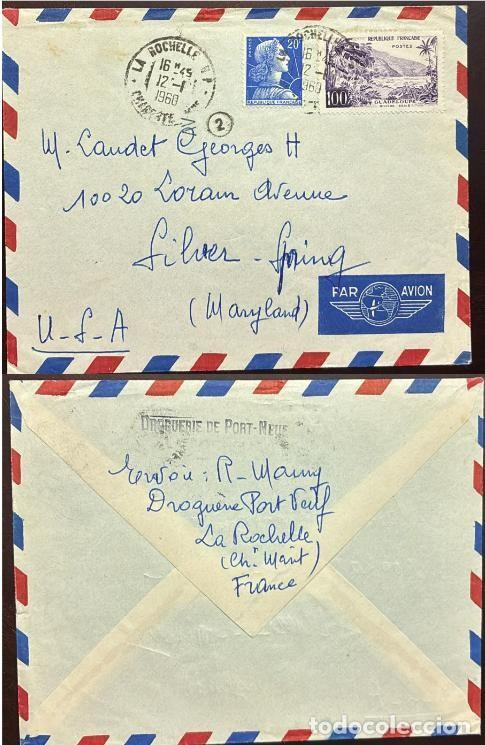 LA ROCHELLE R.P.
16H45
12-1
1960
20F
REPUBLIQUE FRANÇAISE
16H45
12-1
1960
REPUBLIQUE FRANÇAISE
POSTES
100F
GUADELOUPE
2
M. Laudet Georges H
10020 Loram Avenue
Silver-Spring
(Maryland)
U-S-A
PAR AVION
DROGUERIE DE PORT-NEUF
Envoi: R-Mauny
Droguerie Port Neuf
La Rochelle
(Ch. Marit)
France
todocoleccion.net